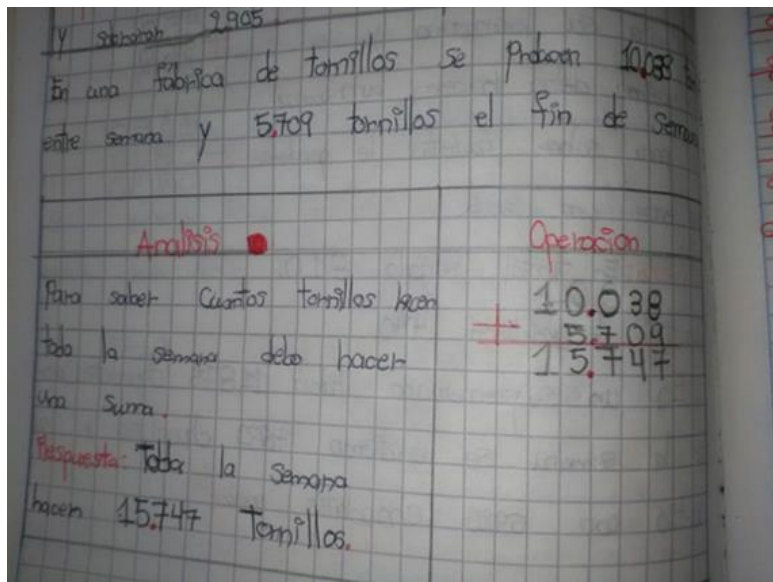 y sobraron 2905
En una fabrica de tornillos se producen 10.038
entre semana y 5.709 tornillos el fin de semana
Analisis
Operacion
Para saber Cuantos tornillos hacen
toda la semana debo hacer
una suma.
Respuesta: Toda la semana
hacen 15.747 Tornillos.
10.038
+ 5.709
15.747